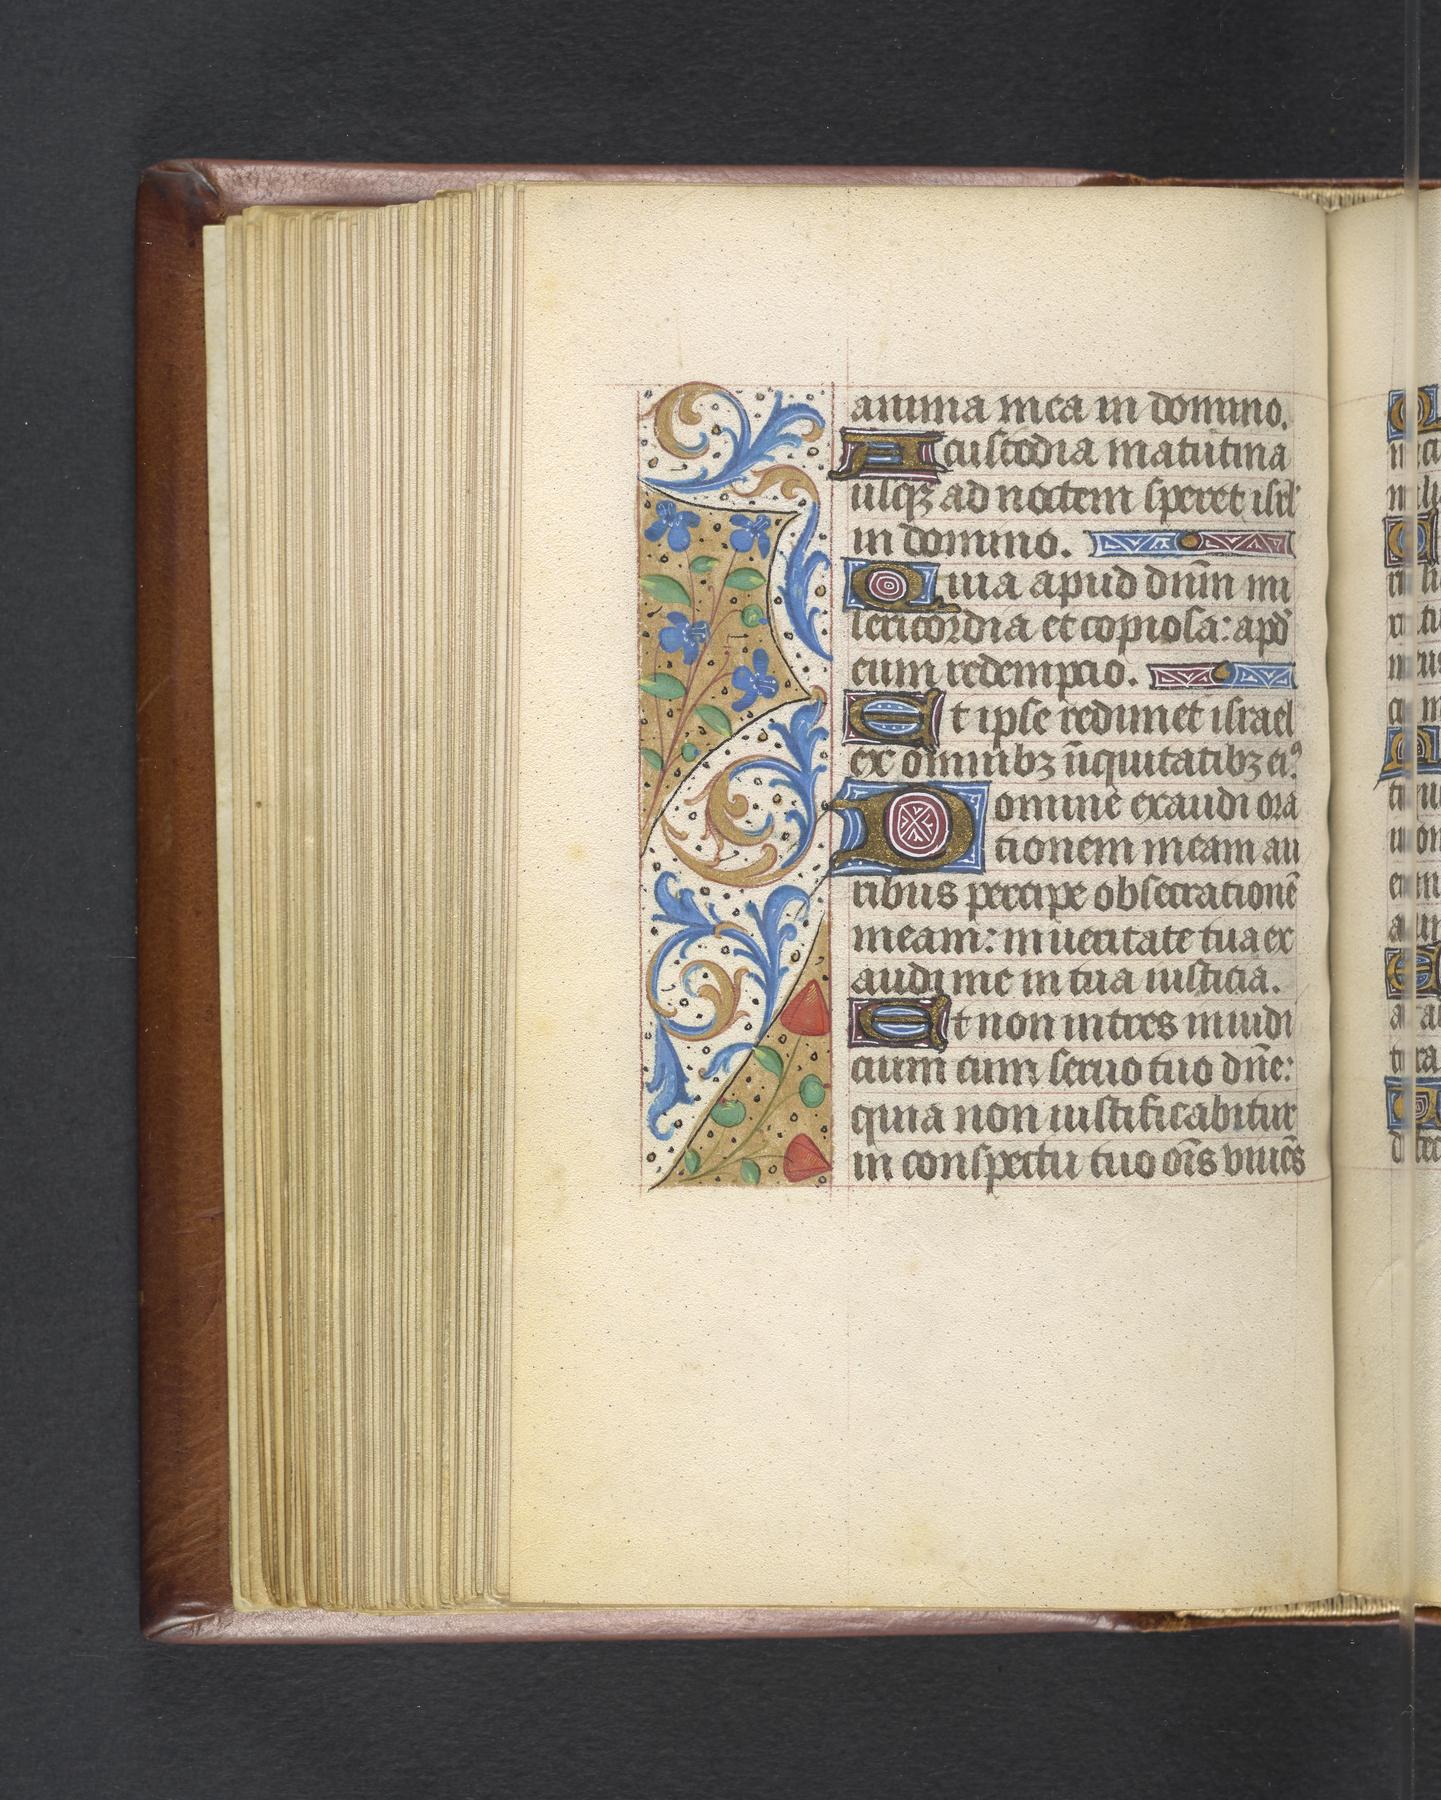 anima mea in domino.
A custodia matutina
usqꝫ ad noctem speret isrl̄
in domino.
Quia apud dn̄m mi
sericordia et copiosa: apd̄
eum redempcio.
Et ipse redimet israel
ex omnibꝫ iniquitatibꝫ eiꝰ.
Domine exaudi ora
tionem meam au
ribus percipe obsecrationē
meam: in ueritate tua ex
audi me in tua iusticia.
Et non intres in iudi
cium cum seruo tuo dn̄e:
quia non iustificabitur
in conspectu tuo oīs viuēs